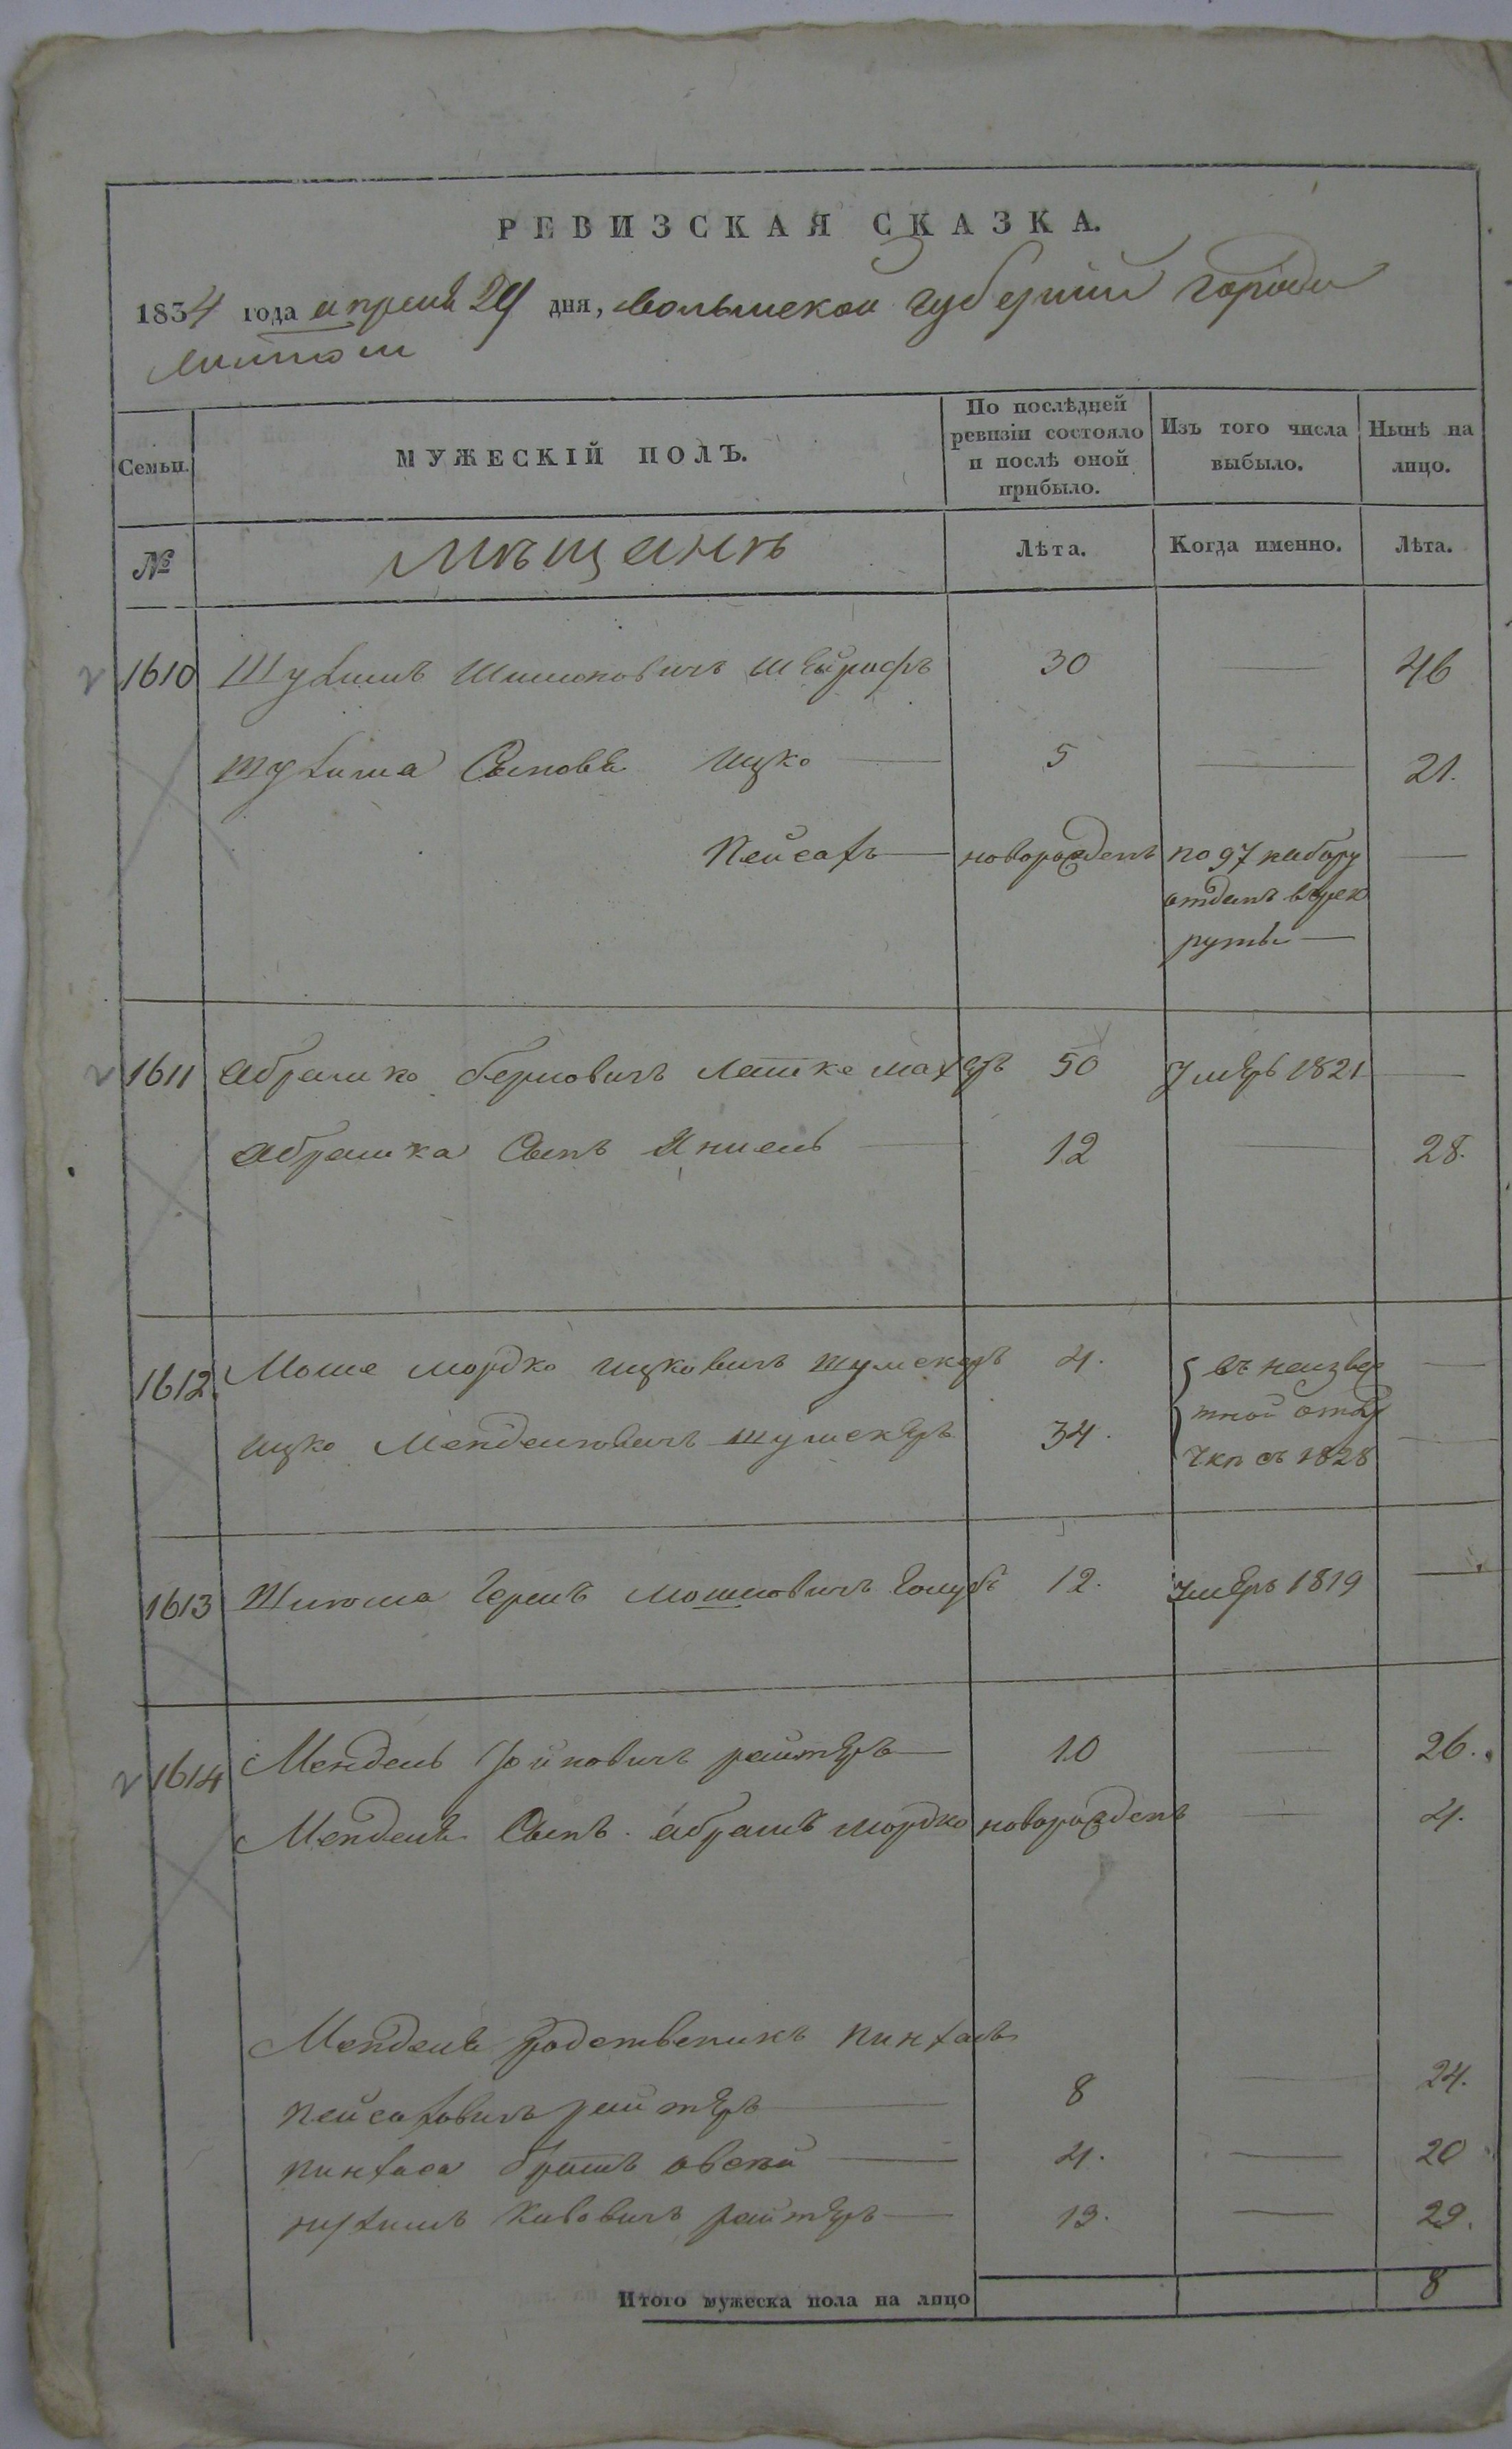 РЕВИЗСКАЯ СКАЗКА.
1834 года апреля 29 дня, Волынской губернии города
Семьи.
МУЖЕСКІЙ ПОЛЪ.
По послѣдней ревизіи состояло и послѣ оной прибыло.
Изъ того числа выбыло.
Нынѣ на лицо.
№
Мѣщанъ
Лѣта.
Когда именно.
Лѣта.
1610 30 46
Сыновья Ицко 5 21.
Пейсахъ новорожденъ по 97 набору —
отданъ в рек
руты
1611 Абрамко Берковичъ 50 умеръ 1821 —
Абрамка Сынъ Янкель 12 28.
1612. Моше Мордко Ицковичъ Шумскеръ 4. въ неизвес —
тной отлу
Ицко Менделовичъ Шумскеръ 34. чкѣ съ 1828 —
1613 Мошковичъ Голубъ 12. умеръ 1819 —
1614 Мендель Рейтеръ 10 26.
Менделя Сынъ Абрамъ Мордко новорожденъ 4.
Менделя родственикъ Пинхасъ
Пейсаховичъ Рейтеръ 8 24.
Пинхаса братъ Овсей 4. 20
Рейтеръ 13. 29.
Итого мужеска пола на лицо 8